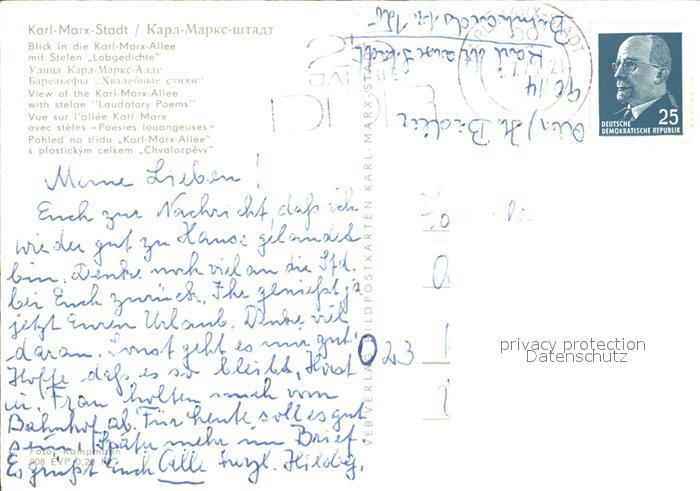 Karl-Marx-Stadt / Карл-Маркс-штадт
Blick in die Karl-Marx-Allee
mit Stelen „Lobgedichte"
Улица Карл-Маркс-Алле
Барельефы „Хвалебные стихи"
View of the Karl-Marx-Allee
with stelae "Laudatory Poems"
Vue sur l'allée Karl Marx
avec stèles «Poésies louangeuses»
Pohled na třídu „Karl-Marx-Allee"
s plastickým celkem „Chvalozpěvy"
Meine Lieben!
Euch zur Nachricht, daß ich
wieder gut zu Hause gelandet
bin. Denke noch viel an die Std.
bei Euch zurück. Ihr genießt ja
jetzt Euren Urlaub. Denke viel
daran. Sonst geht es mir gut,
Hoffe daß es so bleibt, Horst
u. Frau holten mich vom
Bahnhof ab. Für heute soll es gut
sein, später mehr im Brief.
Es grüßt Euch Alle herzl. Hildeg.
Foto: Kampmann
908 EVP 0,20
VEB VERLAG BILDPOSTKARTEN KARL-MARX-STADT
90 14
Karl-Marx-Stadt
KARL-MARX-STADT
25
DEUTSCHE
DEMOKRATISCHE REPUBLIK
023
privacy protection
Datenschutz